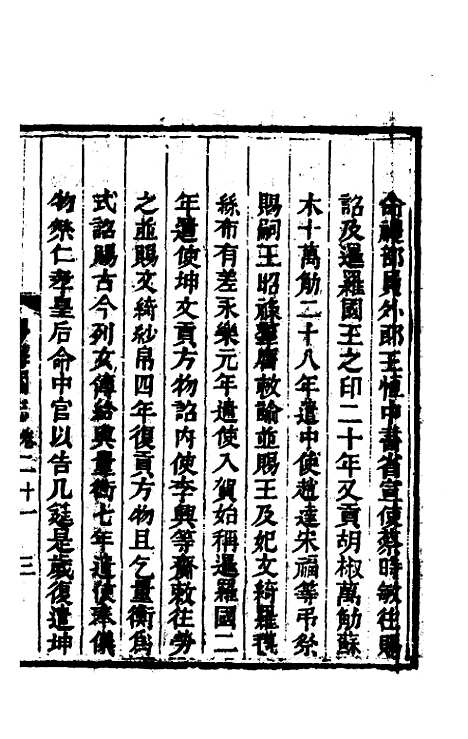 命禮部員外郎王恒中書省宣使蔡時敏往賜
詔及暹羅國王之印二十年又貢胡椒萬觔蘇
木十萬觔二十八年遣中使趙達宋福等弔祭
賜嗣王昭祿羣膺敕諭並賜王及妃文綺羅
絲布有差永樂元年遣使入賀始稱暹羅國二
年遣使坤文貢方物詔內使李興等齎敕往勞
之並賜文綺紗帛四年復貢方物且乞量衡爲
式詔賜古今列女傳給與量衡七年遣使奉儀
物祭仁孝皇后命中官以告几筵是歲復遣坤
卷二十一 三